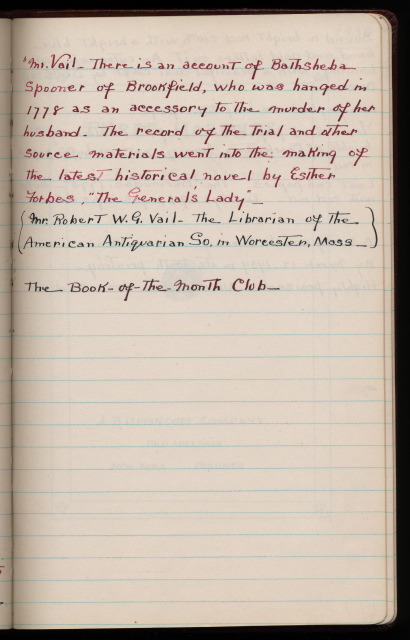 "Mr. Vail - There is an account of Bathsheba
Spooner of Brookfield, who was hanged in
1778 as an accessory to the murder of her
husband. The record of the Trial and other
source materials went into the making of
the latest historical novel by Esther
Forbes, "The General's Lady" -
(Mr. Robert W. G. Vail - The Librarian of the
American Antiquarian So. in Worcester, Mass -)
The Book-of-the-Month Club -